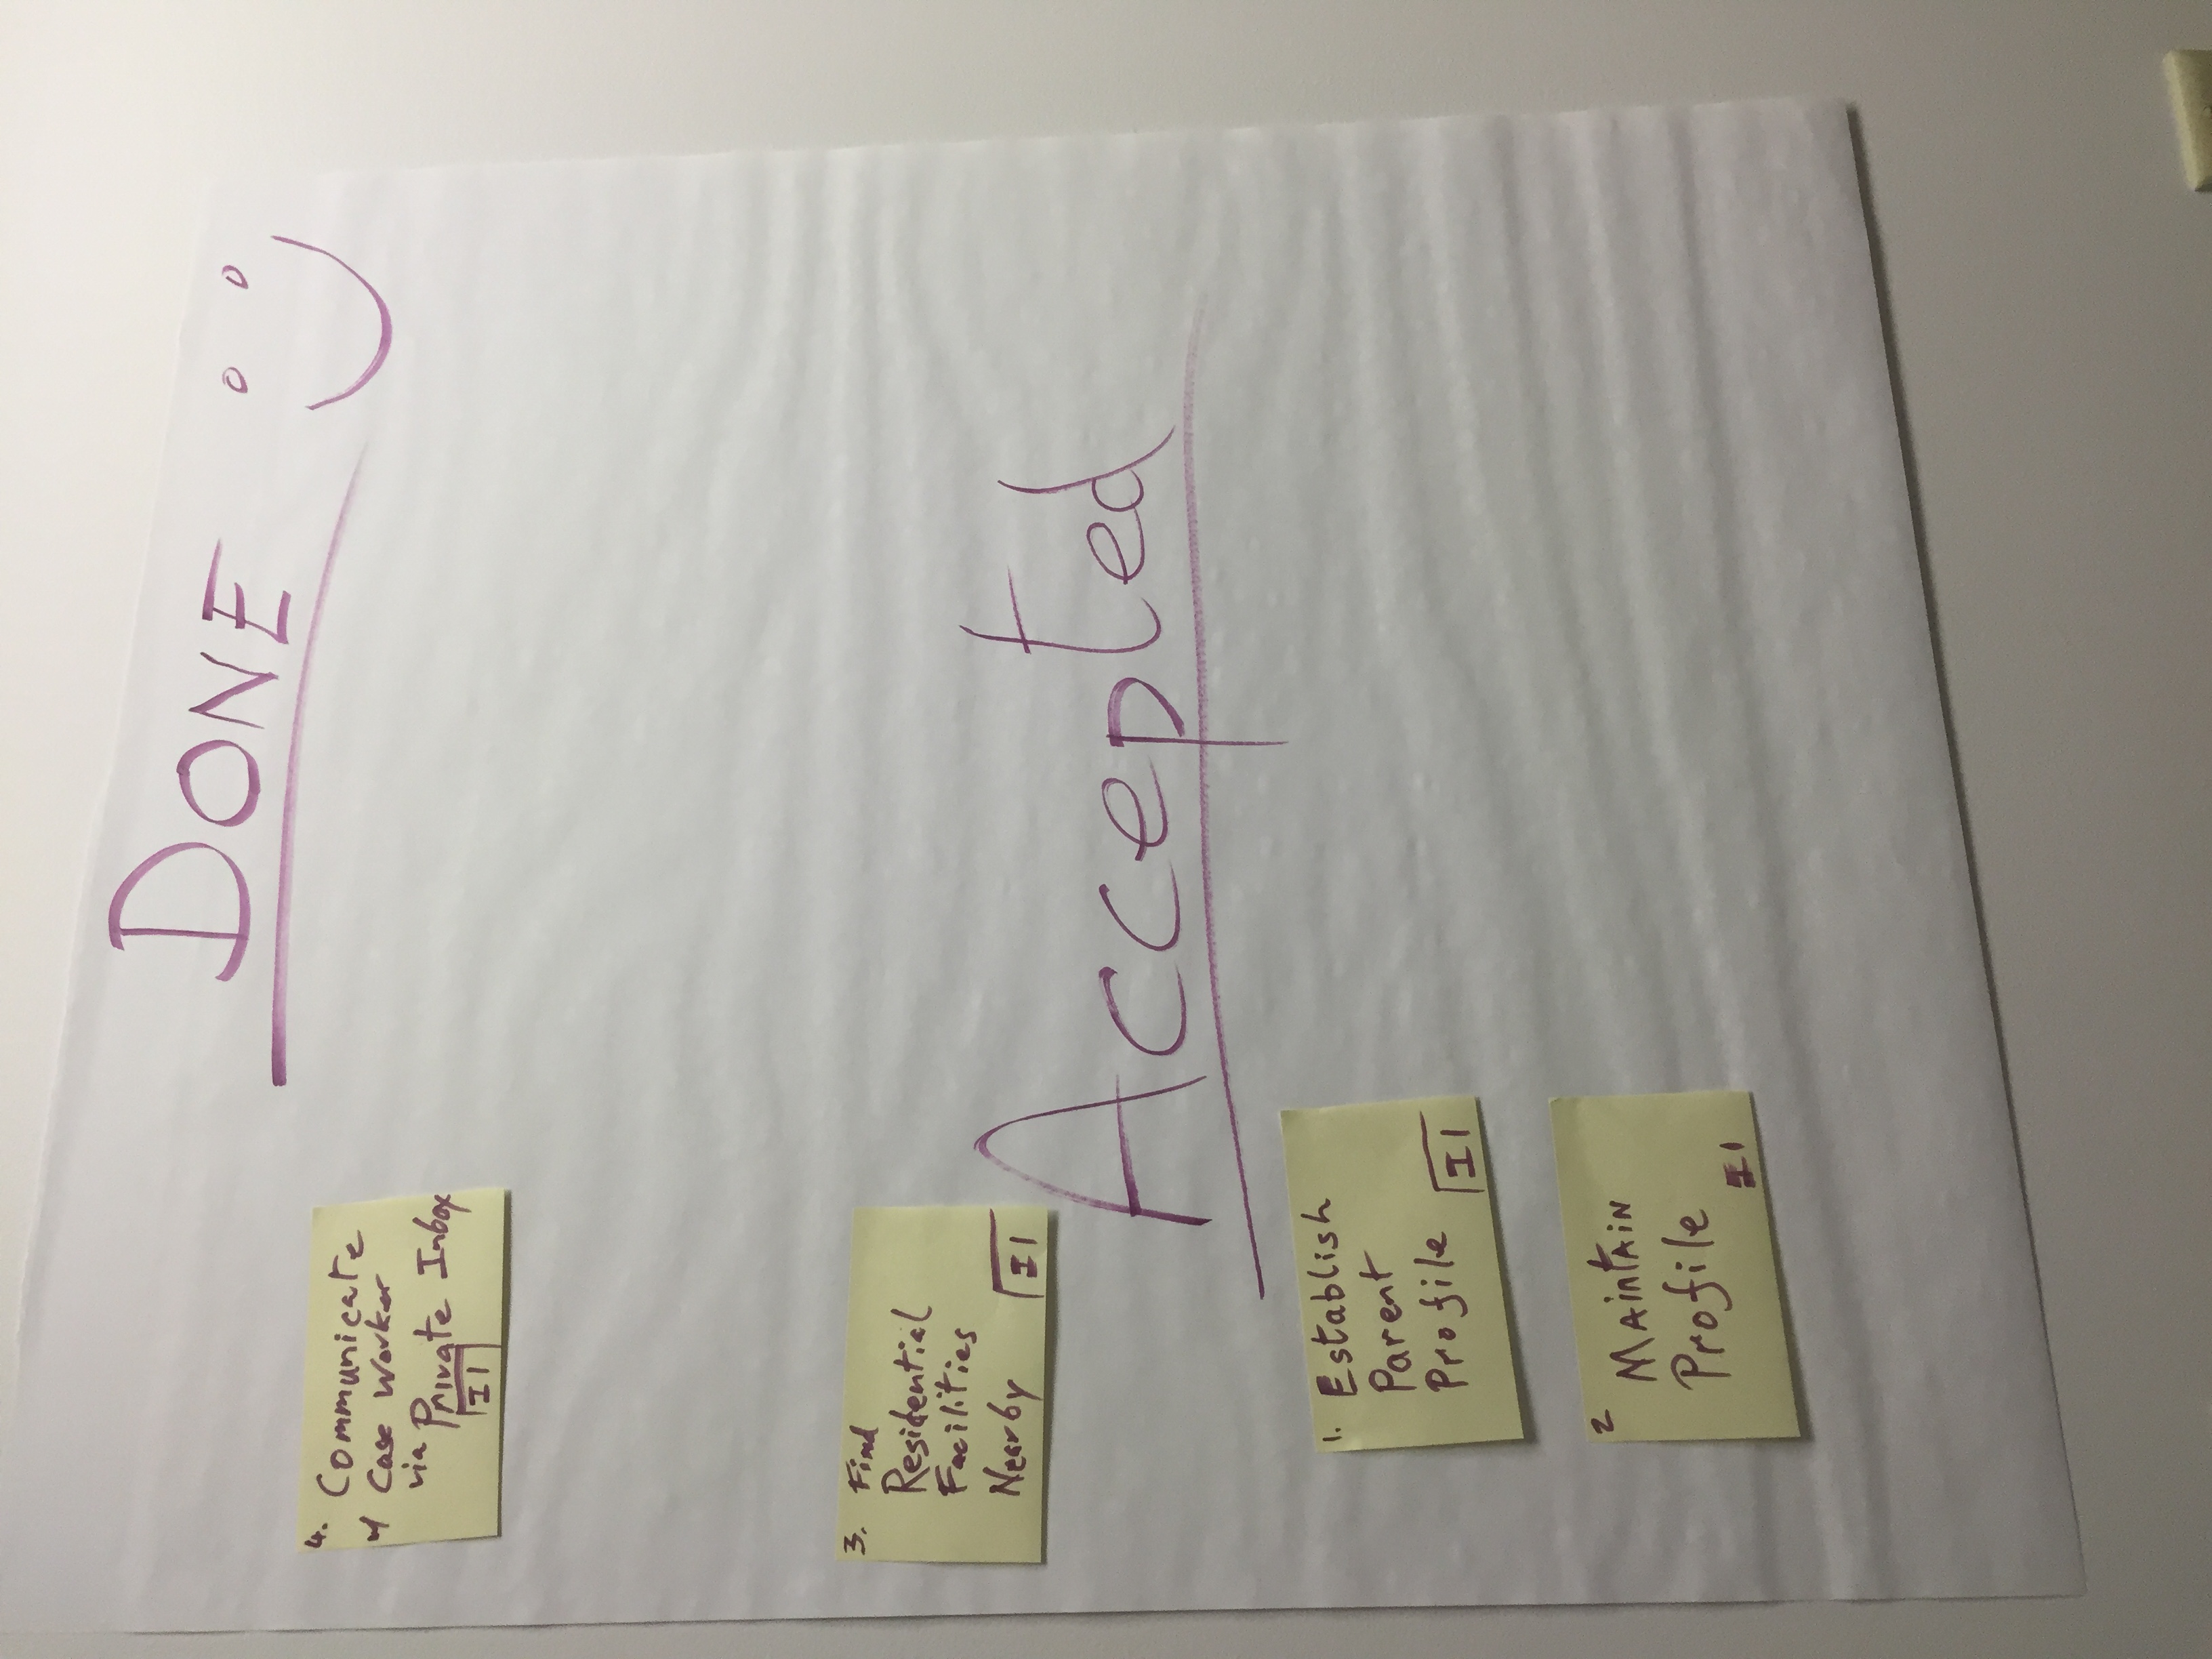 DONE
4. Communicate
w/ Case Worker
via Private Inbox
I1
3. Find
Residential
Facilities
Nearby I1
Accepted
1. Establish
Parent
Profile I1
2 MAintAiN
Profile
I1